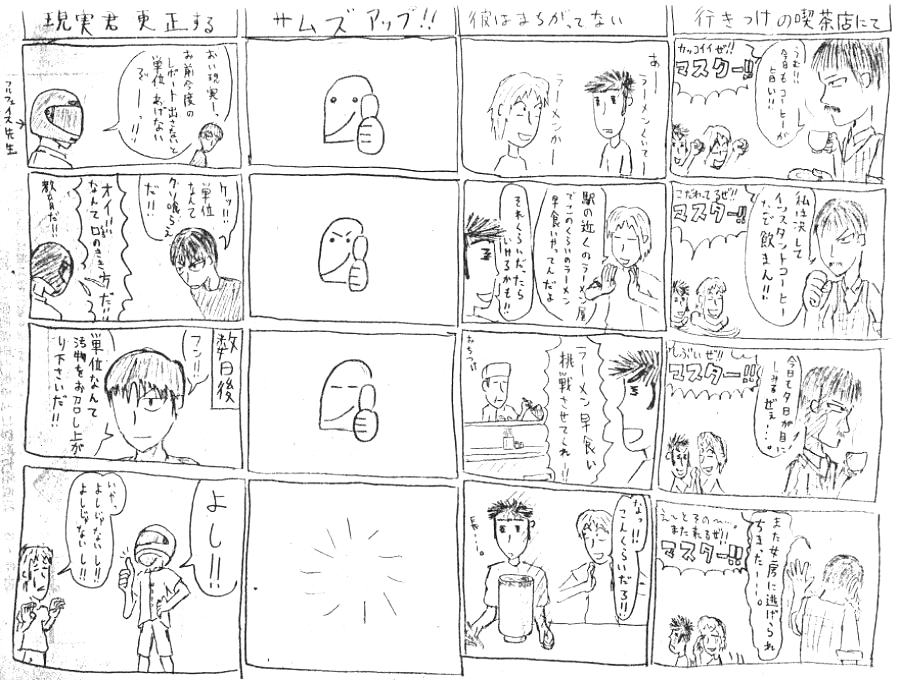 行きつけの喫茶店にて
うむ!!
今日もコーヒーが
旨い!!
カッコイイぜ!!
マスター!!
私は決して
インスタントコーヒー
など飲まん!!
マスター!!
今日も夕日が目に
しみるぜぇ…。
しぶいぜ!!
マスター!!
また女房に逃げられ
ちまったーー。
マスター!!
彼はまちがってない
あー
ラーメンくいてー
ラーメンかー
駅の近くのラーメン屋
でこのくらいのラーメン
早食いやってんだよ
それくらいだったら
いけるかも!!
ラーメン早食い
挑戦させてくれ!!
なっ!!
こんくらいだろ!!
長…。
サムズアップ!!
現実君 更正する
おい現実ー、
お前今度の
レポート出さないと
単位あげない
ぞーー!!
フルフェイス先生
ケッ!!
単位
なんて
クソ喰らえ
だ!!
オイ!!
なんて口のきき方だ!!
教育だ!!
数日後
フン!!
単位なんて
汚物をお召し上が
り下さいだ!!
よし!!
いや、
よしじゃないし!!
よしじゃないし!!